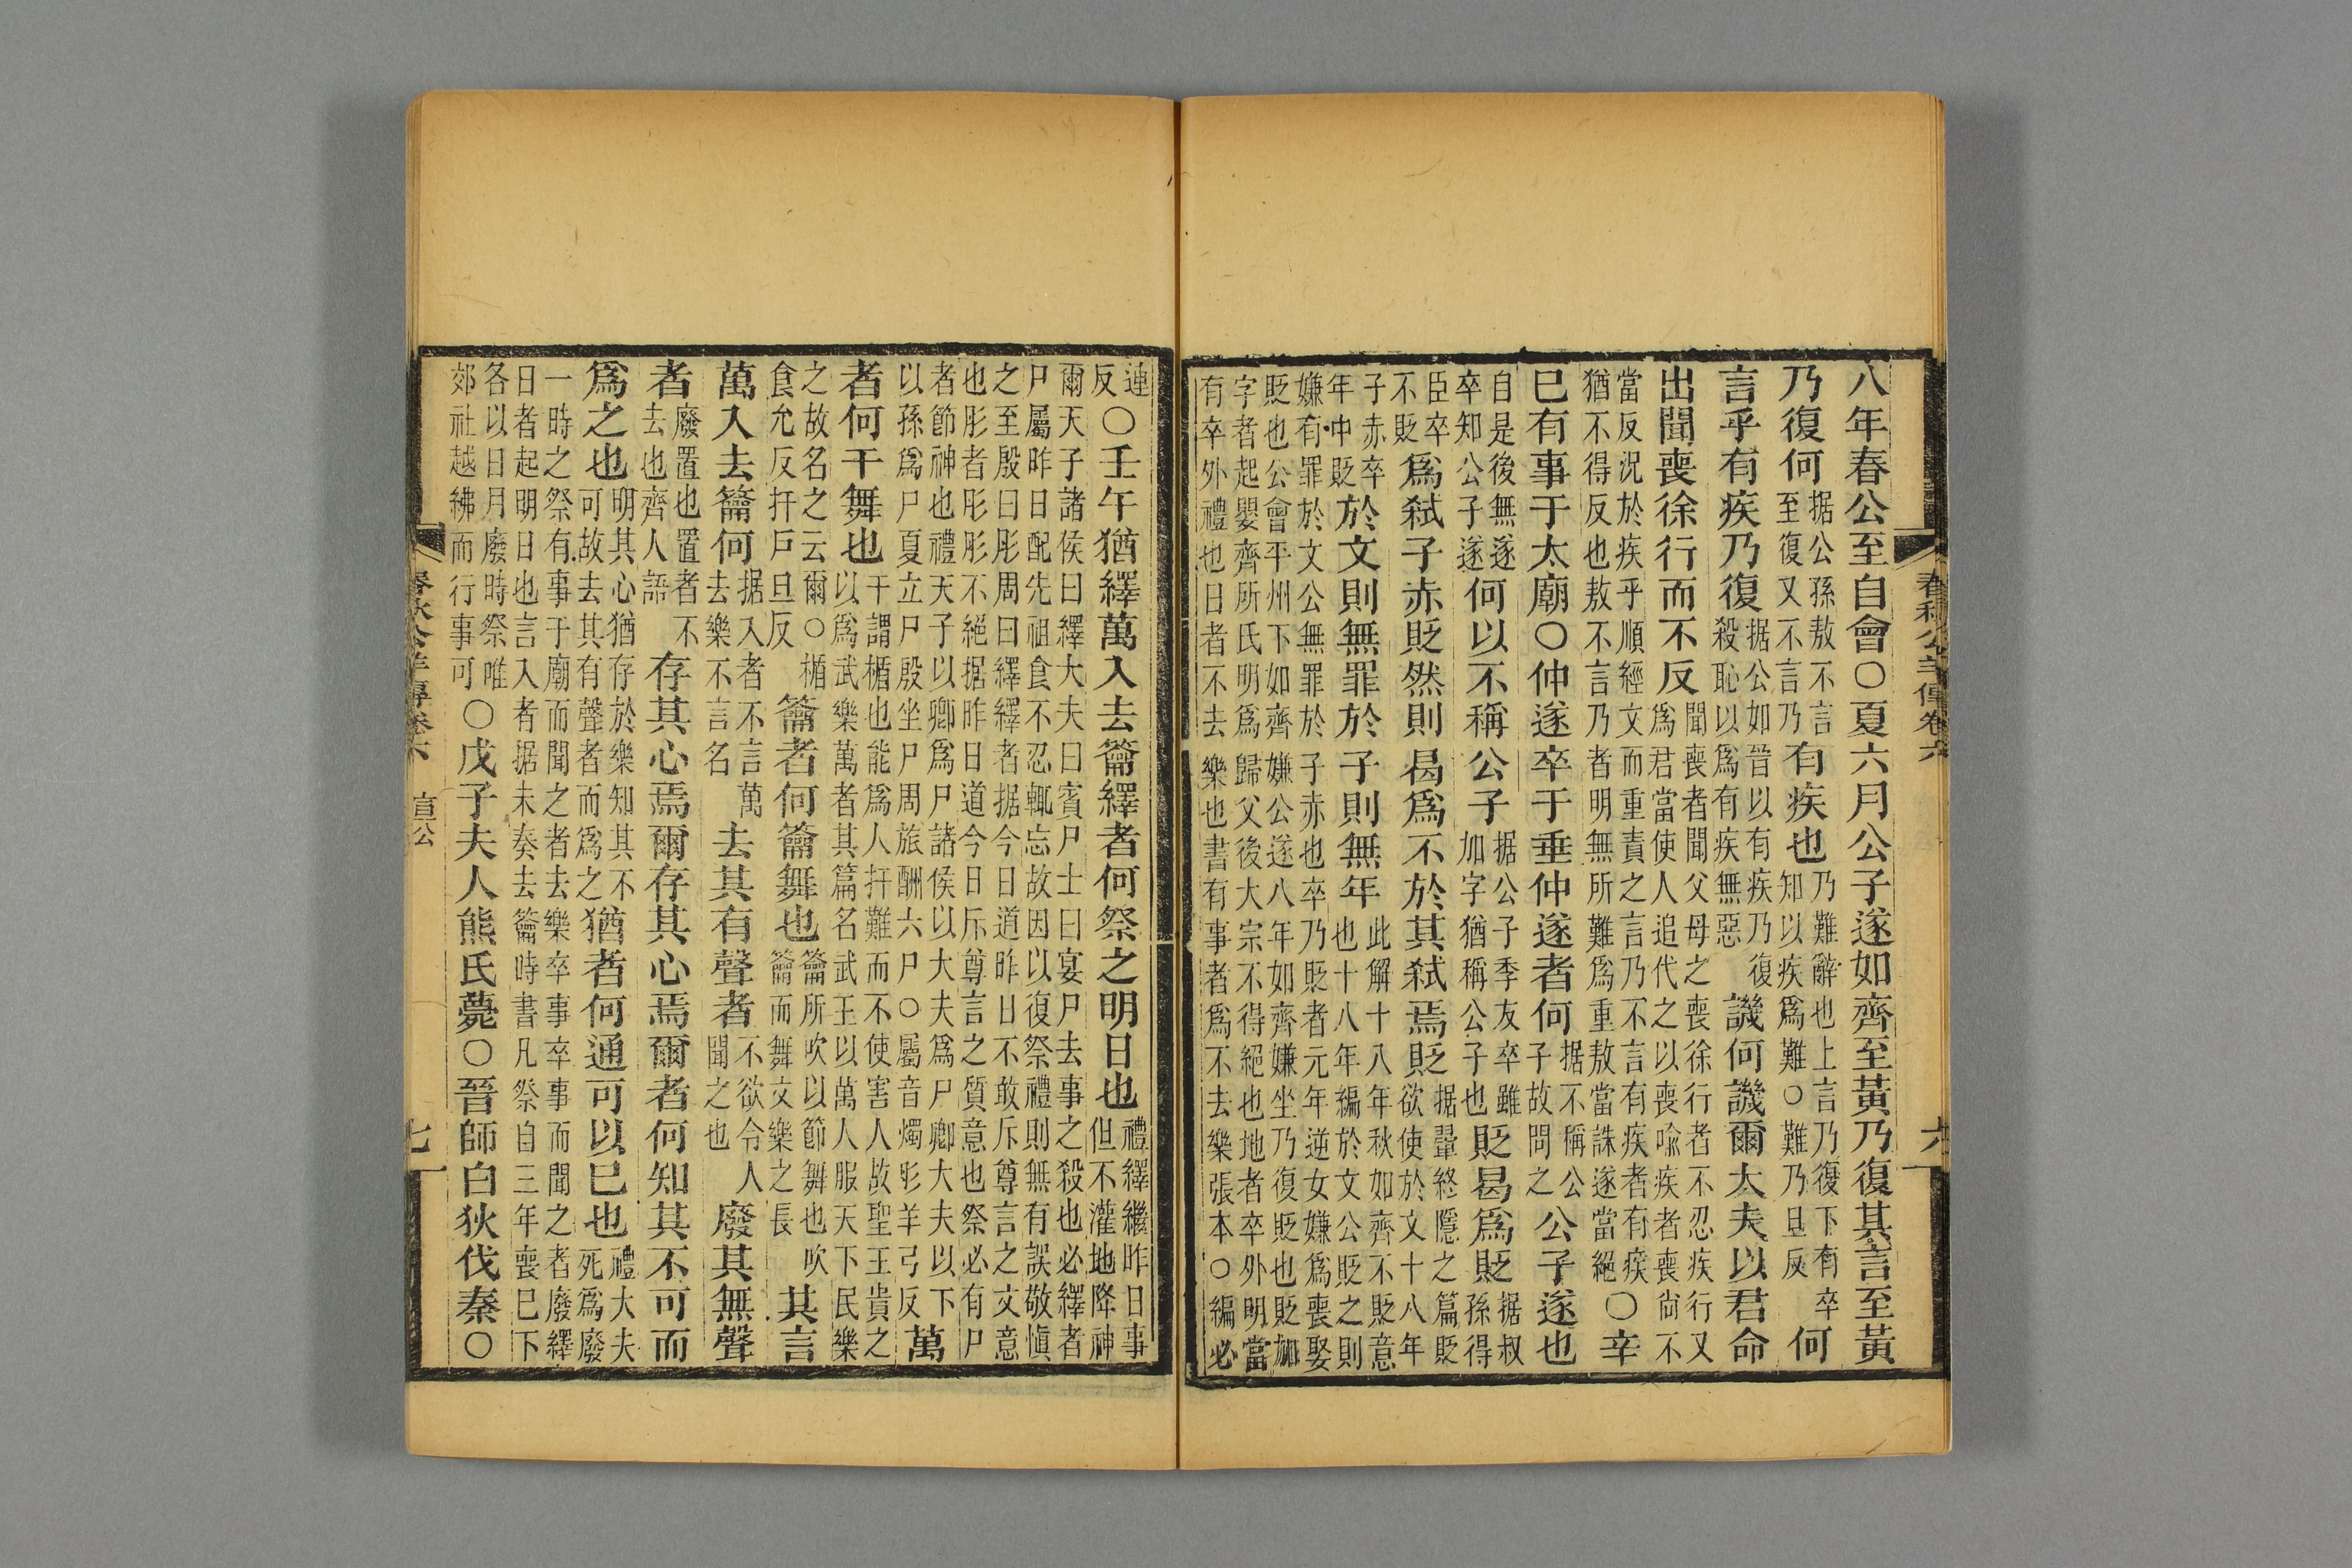 春秋公羊傳卷六
六
八年春公至自會○夏六月公子遂如齊至黃乃復其言至黃
乃復何据公孫敖不言至復又不言乃有疾也乃難辭也上言乃復下有卒知以疾爲難○難乃旦反何
言乎有疾乃復据公如晉以有疾乃復殺恥以爲有疾無惡譏何譏爾大夫以君命
出聞喪徐行而不反聞喪者聞父母之喪徐行者不忍疾行又爲君當使人追代之以喪喻疾者喪尚不
當反況於疾乎順經文而重責之言乃不言有疾者有疾猶不得反也敖不言乃者明無所難爲重敖當誅遂當絕○辛
巳有事于太廟○仲遂卒于垂仲遂者何据不稱公子故問之公子遂也
自是後無遂卒知公子遂何以不稱公子据公子季友卒雖加字猶稱公子也貶曷爲貶据叔孫得
臣卒不貶爲弒子赤貶然則曷爲不於其弒焉貶据翬終隱之篇貶欲使於文十八年
子赤卒年中貶於文則無罪於子則無年此解十八年秋如齊不貶意也十八年編於文公貶之則
嫌有罪於文公無罪於子赤也卒乃貶者元年逆女嫌爲喪娶貶也公會平州下如齊嫌公遂八年如齊嫌坐乃復貶也貶加
字者起嬰齊所氏明爲歸父後大宗不得絕也地者卒外明當有卒外禮也日者不去樂也書有事者爲不去樂張本○編必
連反○壬午猶繹萬入去籥繹者何祭之明日也禮繹繼昨日事但不灌地降神
爾天子諸侯曰繹大夫曰賓尸士曰宴尸去事之殺也必繹者尸屬昨日配先祖食不忍輒忘故因以復祭禮則無有誤敬愼
之至殷曰肜周曰繹繹者据今日道昨日不敢斥尊言之文意也肜者肜肜不絕据昨日道今日斥尊言之質意也祭必有尸
者節神也禮天子以卿爲尸諸侯以大夫爲尸卿大夫以下以孫爲尸夏立尸殷坐尸周旅酬六尸○屬音燭肜羊弓反萬
者何干舞也干謂楯也能爲人扞難而不使害人故聖王貴之以爲武樂萬者其篇名武王以萬人服天下民樂
之故名之云爾○楯食允反扞戶旦反籥者何籥舞也籥所吹以節舞也吹籥而舞文樂之長其言
萬入去籥何据入者不言萬去樂不言名去其有聲者不欲令人聞之也廢其無聲
者廢置也置者不去也齊人語存其心焉爾存其心焉爾者何知其不可而
爲之也明其心猶存於樂知其不可故去其有聲者而爲之猶者何通可以已也禮大夫死爲廢
一時之祭有事于廟而聞之者去樂卒事卒事而聞之者廢繹日者起明日也言入者据未奏去籥時書凡祭自三年喪已下
各以日月廢時祭唯郊社越紼而行事可○戊子夫人熊氏薨○晉師白狄伐秦○
春秋公羊傳卷六 宣公
七